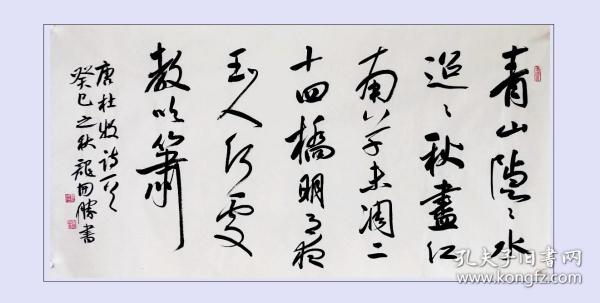 青山隱〻水
迢〻秋盡江
南草未凋二
十四橋明月夜
玉人何處
教吹簫
唐杜牧诗一首
癸巳之秋 勝書
孔夫子旧书网
www.kongfz.com